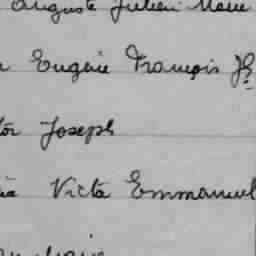 Auguste Julien Marie
Eugène François Jh
tor Joseph
Victor Emmanuel